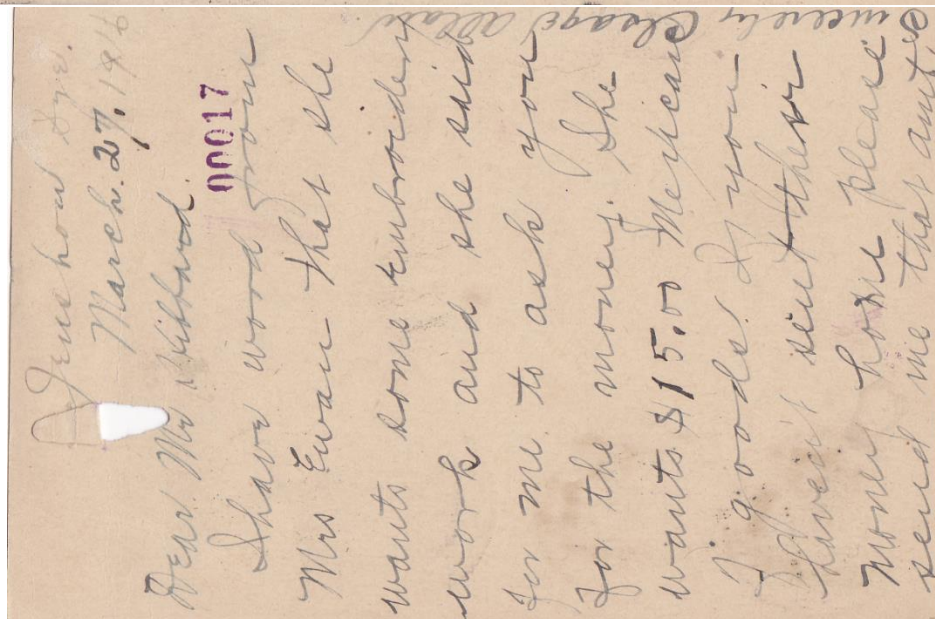 Jenshow Dye.
March. 27. 1916
00017
Dear. Mr Hibbard.
I have word from
Mrs Evan that she
wants some embroidery
work and she said
for me to ask you
for the money. She
wants $15.00 Mexican
goods. If you
havent sent their
money home please
send me that amt.
Sincerely